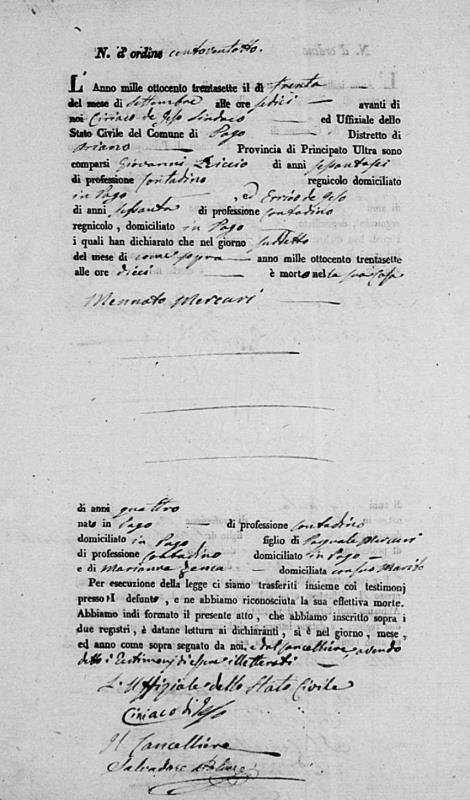 N. d'ordine centoventotto.
L'Anno mille ottocento trentasette il dì trenta
del mese di settembre alle ore sedici avanti di
noi Ciriaco de Gso Sindaco ed Uffiziale dello
Stato Civile del Comune di Pago Distretto di
Ariano Provincia di Principato Ultra sono
comparsi Giovanni Riccio di anni sessantasei
di professione Contadino regnicolo domiciliato
in Pago ed Errico de Gso
di anni sessanta di professione Contadino
regnicolo, domiciliato in Pago
i quali han dichiarato che nel giorno suddetto
del mese di come sopra anno mille ottocento trentasette
alle ore dieci è morto nella sua Casa
Mennato Mercuri
di anni quattro
nato in Pago di professione Contadino
domiciliato in Pago figlio di Pasquale Mercuri
di professione Contadino domiciliato in Pago
e di Marianna domiciliata con suo Marito
Per esecuzione della legge ci siamo trasferiti insieme coi testimonj
presso il defunto, e ne abbiamo riconosciuta la sua effettiva morte.
Abbiamo indi formato il presente atto, che abbiamo inscritto sopra i
due registri, è datane lettura ai dichiaranti, si è nel giorno, mese,
ed anno come sopra segnato da noi, e dal Cancelliere, avendo
detto i Testimonj di essere illetterati
L'Uffiziale dello Stato Civile
Ciriaco di Gso
Il Cancelliere
Salvadore